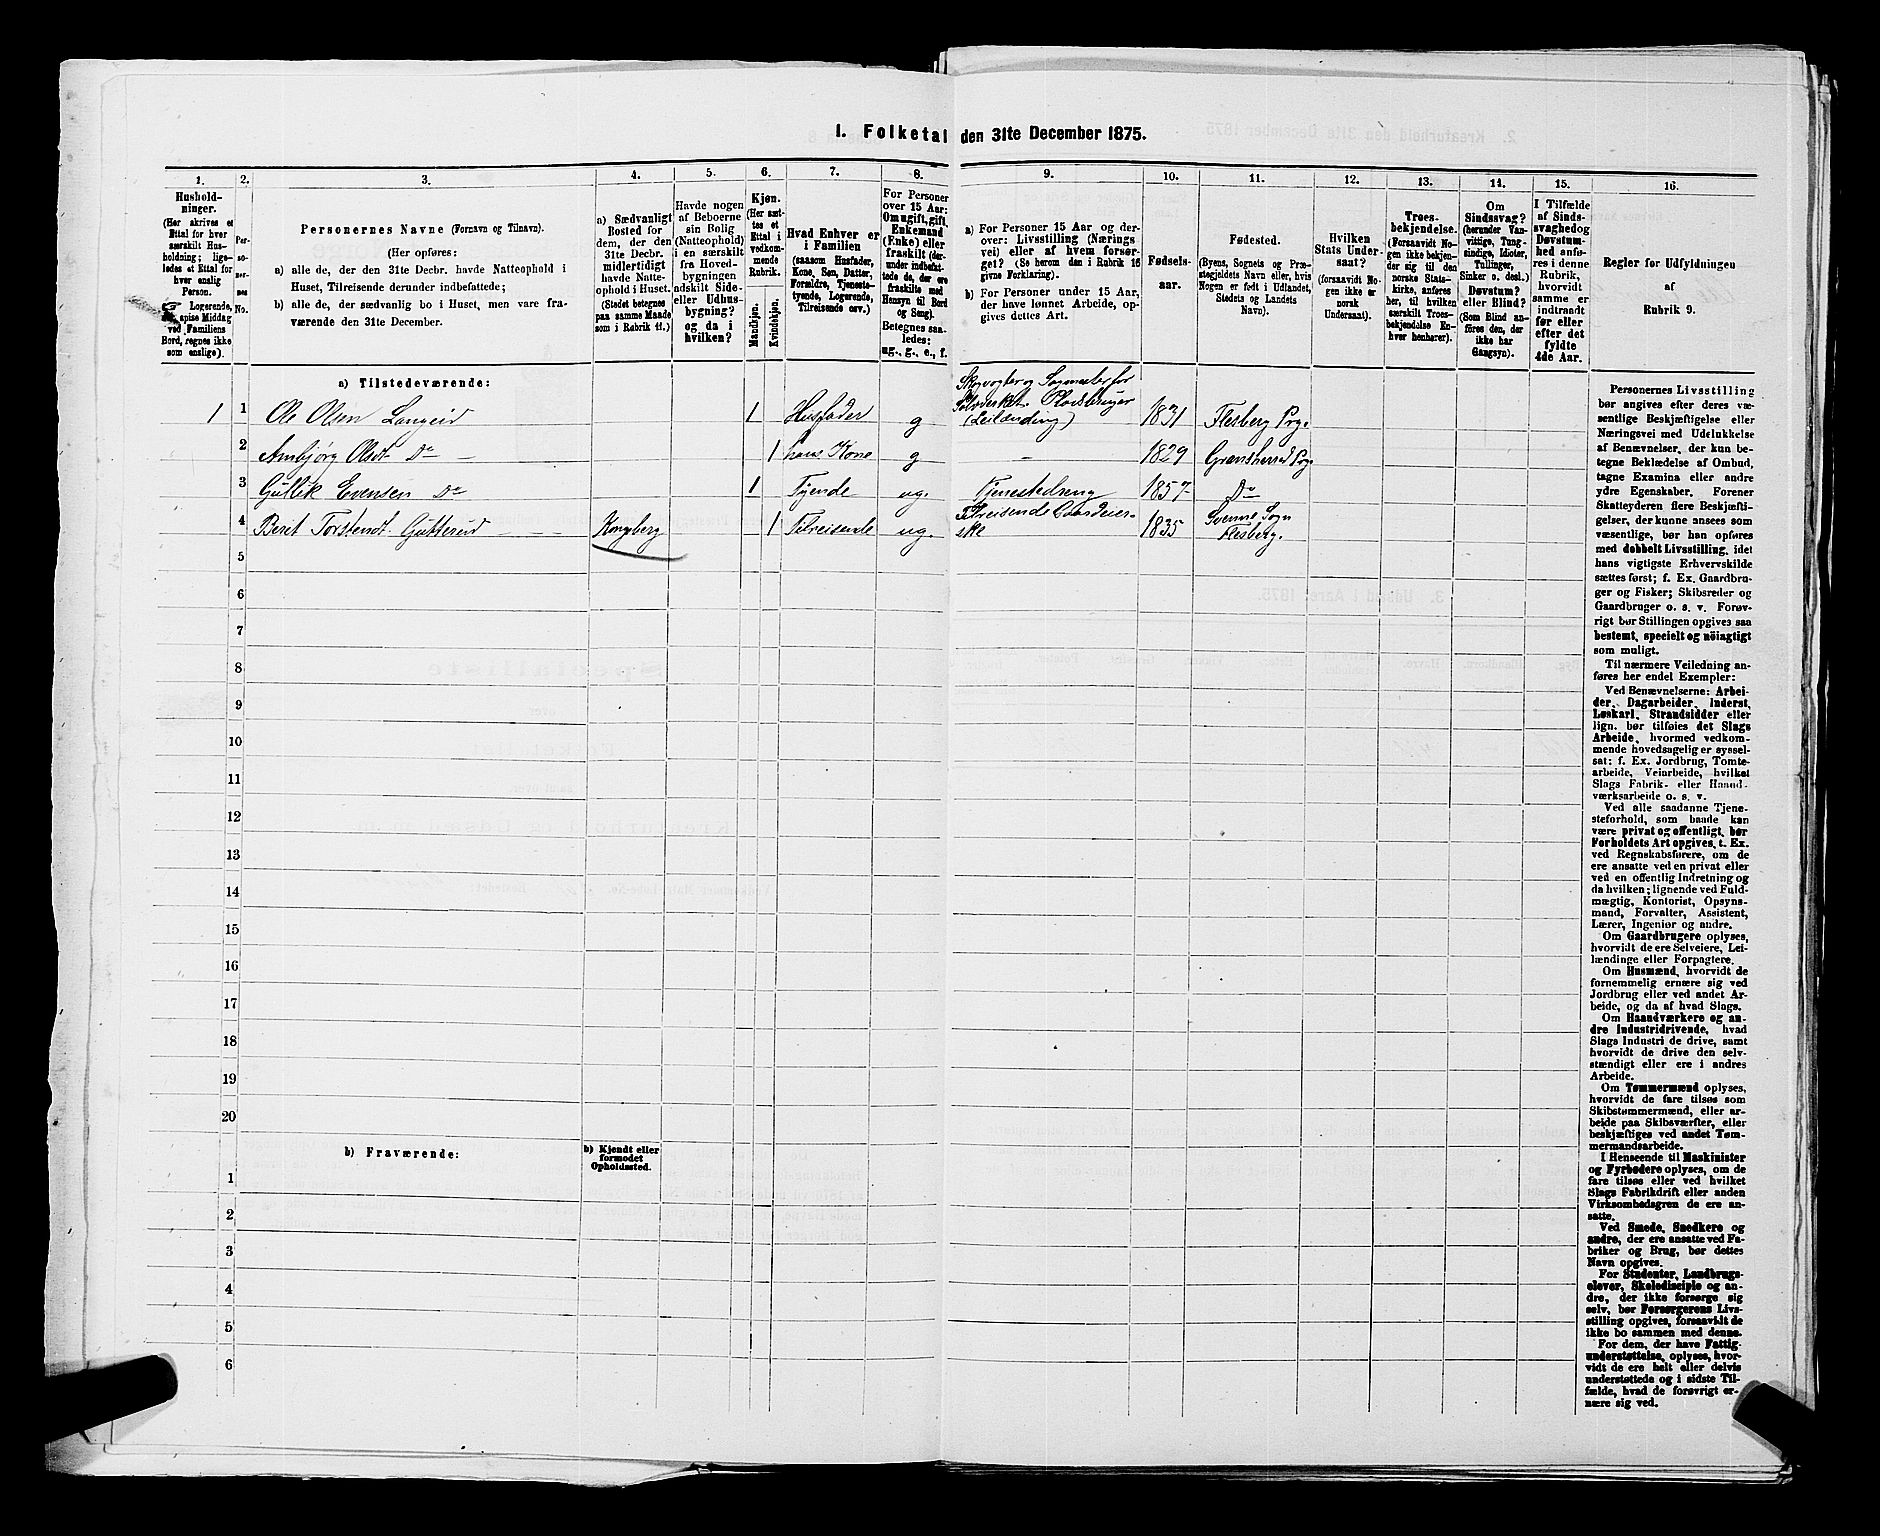 1. Folketal den 31te December 1875.
1.
2.
3.
4.
5.
6.
7.
8.
9.
10.
11.
12.
13.
14.
15.
16.
Hushold-
ninger.
(Her skrives et
Ettal for hver
særskilt Hus-
holdning; lige-
ledes et Ettal for
hver enslig
Person.
Logerende,
spise Middag
ved Familiens
Bord, regnes ikke
som enslige).
Per-
so-
ner-
nes
No.
Personernes Navne (Fornavn og Tilnavn).
(Her opføres:
a) alle de, der den 31te Decbr. havde Natteophold i
Huset, Tilreisende derunder indbefattede;
b) alle de, der sædvanlig bo i Huset, men vare fra-
værende den 31te December.
a) Sædvanligt
Bosted for
dem, der den
31te Decbr.
midlertidigt
havde Natte-
ophold i Huset.
(Stedet betegnes
paa samme Maade
som i Rubrik 11.)
Havde nogen
af Beboerne
sin Bolig
(Natteophold)
i en særskilt
fra Hoved-
bygningen
adskilt Side-
eller Udhus-
bygning?
og da i
hvilken?
Kjøn.
(Her sæt-
tes et
Ettal i
vedkom-
mende
Rubrik.
Mandkjøn.
Kvindekjøn.
Hvad Enhver er
i Familien
(saasom Husfader,
Kone, Søn, Datter,
Forældre, Tjeneste-
tyende, Logerende,
Tilreisende osv.)
For Personer
over 15 Aar:
Om ugift, gift,
Enkemand
(Enke) eller
fraskilt (der-
under indbefat-
tede de, der ere
fraskilte med
Hensyn til Bord
og Seng).
Betegnes saa-
ledes:
ug., g., e., f.
a) For Personer 15 Aar og der-
over: Livsstilling (Nærings
vei) eller af hvem forsør-
get? (Se herom den i Rubrik 16
givne Forklaring).
b) For Personer under 15 Aar,
der have lønnet Arbeide, op-
gives dettes Art.
Fødsels-
aar.
Fødested.
(Byens, Sognets og Præ-
stegjeldets Navn eller, hvis
Nogen er født i Udlandet,
Stedets og Landets
Navn).
Hvilken
Stats Under-
saat?
(forsaavidt No-
gen ikke er
norsk
Undersaat).
Troes-
bekjendelse.
(Forsaavidt No-
gen ikke bekjen-
der sig til den
norske Stats-
kirke, anføres
her, til hvilken
særskilt Troes-
bekjendelse En-
hver henhører).
Om
Sindssvag?
(herunder Van-
vittige, Tung-
sindige, Idioter,
Tullinger,
Sinker o. desl.)
Døvstum?
eller Blind?
(Som Blind an-
føres den, der
ikke har
Gangsyn).
I Tilfælde
af Sinds-
svaghed og
Døvstum-
hed anfø-
res i denne
Rubrik,
hvorvidt
samme er
indtraadt
før eller
efter det
fyldte
4de Aar.
Regler for Udfyldningen
af
Rubrik 9.
a) Tilstedeværende:
1 1 Ole Olsen Langeid 1 Husfader g Skovvogter og Sagmester for
Sølvverket. Pladsbruger
(Leilænding) 1831 Flesberg Prg.
2 Ambjørg Olsdt Do — 1 hans Kone g — 1829 Gransherred Prg.
3 Gullik Evensen Do 1 Tyende ug. Tjenestedreng 1857 Do
4 Berit Torstendt Gutterud Kongsberg 1 Tilreisende ug. Tilreisende Gaardeier-
ske 1835 Svenne Sogn
Flesberg.
5
6
7
8
9
10
11
12
13
14
15
16
17
18
19
20
b) Fraværende:
b) Kjendt eller
formodet
Opholdssted.
1
2
3
4
5
6
Personernes Livsstilling
bør angives efter deres væ-
sentlige Beskjæftigelse eller
Næringsvei med Udelukkelse
af Benævnelser, der kun be-
tegne Beklædelse af Ombud,
tagne Examina eller andre
ydre Egenskaber. Forener
Skatteyderen flere Beskjæfti-
gelser, der kunne ansees som
væsentlige, bør han opføres
med dobbelt Livsstilling, idet
hans vigtigste Erhvervskilde
sættes først; f. Ex. Gaardbru-
ger og Fisker; Skibsreder og
Gaardbruger o. s. v. Forøv-
rigt bør Stillingen opgives saa
bestemt, specielt og nöiagtigt
som muligt.
Til nærmere Veiledning an-
føres her endel Exempler:
Ved Benævnelserne: Arbei-
der, Dagarbeider, Inderst,
Løskarl, Strandsidder eller
lign. bør tilføies det Slags
Arbeide, hvormed vedkom-
mende hovedsagelig er syssel-
sat; f. Ex. Jordbrug, Tomte-
arbeide, Veiarbeide, hvilket
Slags Fabrik- eller Haand-
værksarbeide o. s. v.
Ved alle saadanne Tjene-
steforhold, som baade kan
være privat og offentligt, bør
Forholdets Art opgives, t. Ex.
ved Regnskabsførere, om de
ere ansatte ved en privat eller
ved en offentlig Indretning og
da hvilken; lignende ved Fuld-
mægtig, Kontorist, Opsyns-
mand, Forvalter, Assistent,
Lærer, Ingeniør og andre.
Om Gaardbrugere oplyses,
hvorvidt de ere Selveiere, Lei-
lændinge eller Forpagtere.
Om Husmænd, hvorvidt de
fornemmelig ernære sig ved
Jordbrug eller ved andet Ar-
beide, og da af hvad Slags.
Om Haandværkere og an-
dre Industridrivende, hvad
Slags Industri de drive, samt
hvorvidt de drive den selv-
stændigt eller ere i andres
Arbeide.
Om Tømmermænd oplyses,
hvorvidt de fare tilsøs som
Skibstømmermænd, eller ar-
beide paa Skibsværfter, eller
beskjæftiges ved andet Tøm-
mermandsarbeide.
I Henseende til Maskinister
og Fyrbødere oplyses, om de
fare tilsøs eller ved hvilket
Slags Fabrikdrift eller anden
Virksomhedsgren de ere an-
satte.
Ved Smede, Snedkere og
andre, der ere ansatte ved Fa-
briker og Brug, bør dettes
Navn opgives.
For Studenter, Landbrugs-
elever, Skoledisciple og an-
dre, der ikke forsørge sig
selv, bør Forsørgerens Livs-
stilling opgives, forsaavidt de
ikke bo sammen med denne.
For dem, der have Fattig-
understøttelse, oplyses, hvor-
vidt de ere helt eller delvis
understøttede og i sidste Til-
fælde, hvad de forøvrigt er-
nære sig ved.